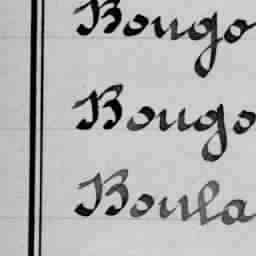 Bougo
Bougo
Boula